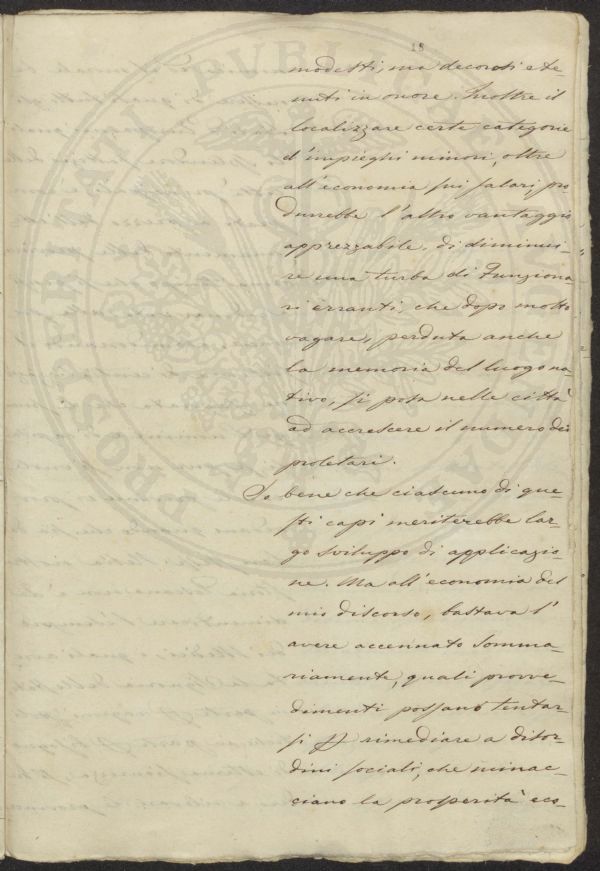 18
modesti, ma decorosi e te-
nuti in onore. Inoltre il
localizzare certe categorie
d'impieghi minori, oltre
all'economia sui salari pro
durrebbe l'altro vantaggio
apprezzabile, di diminui-
re una turba di Funziona-
ri erranti, che dopo molto
vagare, perduta anche
la memoria del luogo na
tivo, si posa nelle città
ad accrescere il numero dei
proletari.
So bene che ciascuno di que-
sti capi meriterebbe lar-
go sviluppo di applicazio-
ne. Ma all'economia del
mio discorso, bastava l'
avere accennato somma-
riamente, quali provve-
dimenti possano tentar-
si rimediare a disor-
dini sociali, che minac-
ciano la prosperità eco-